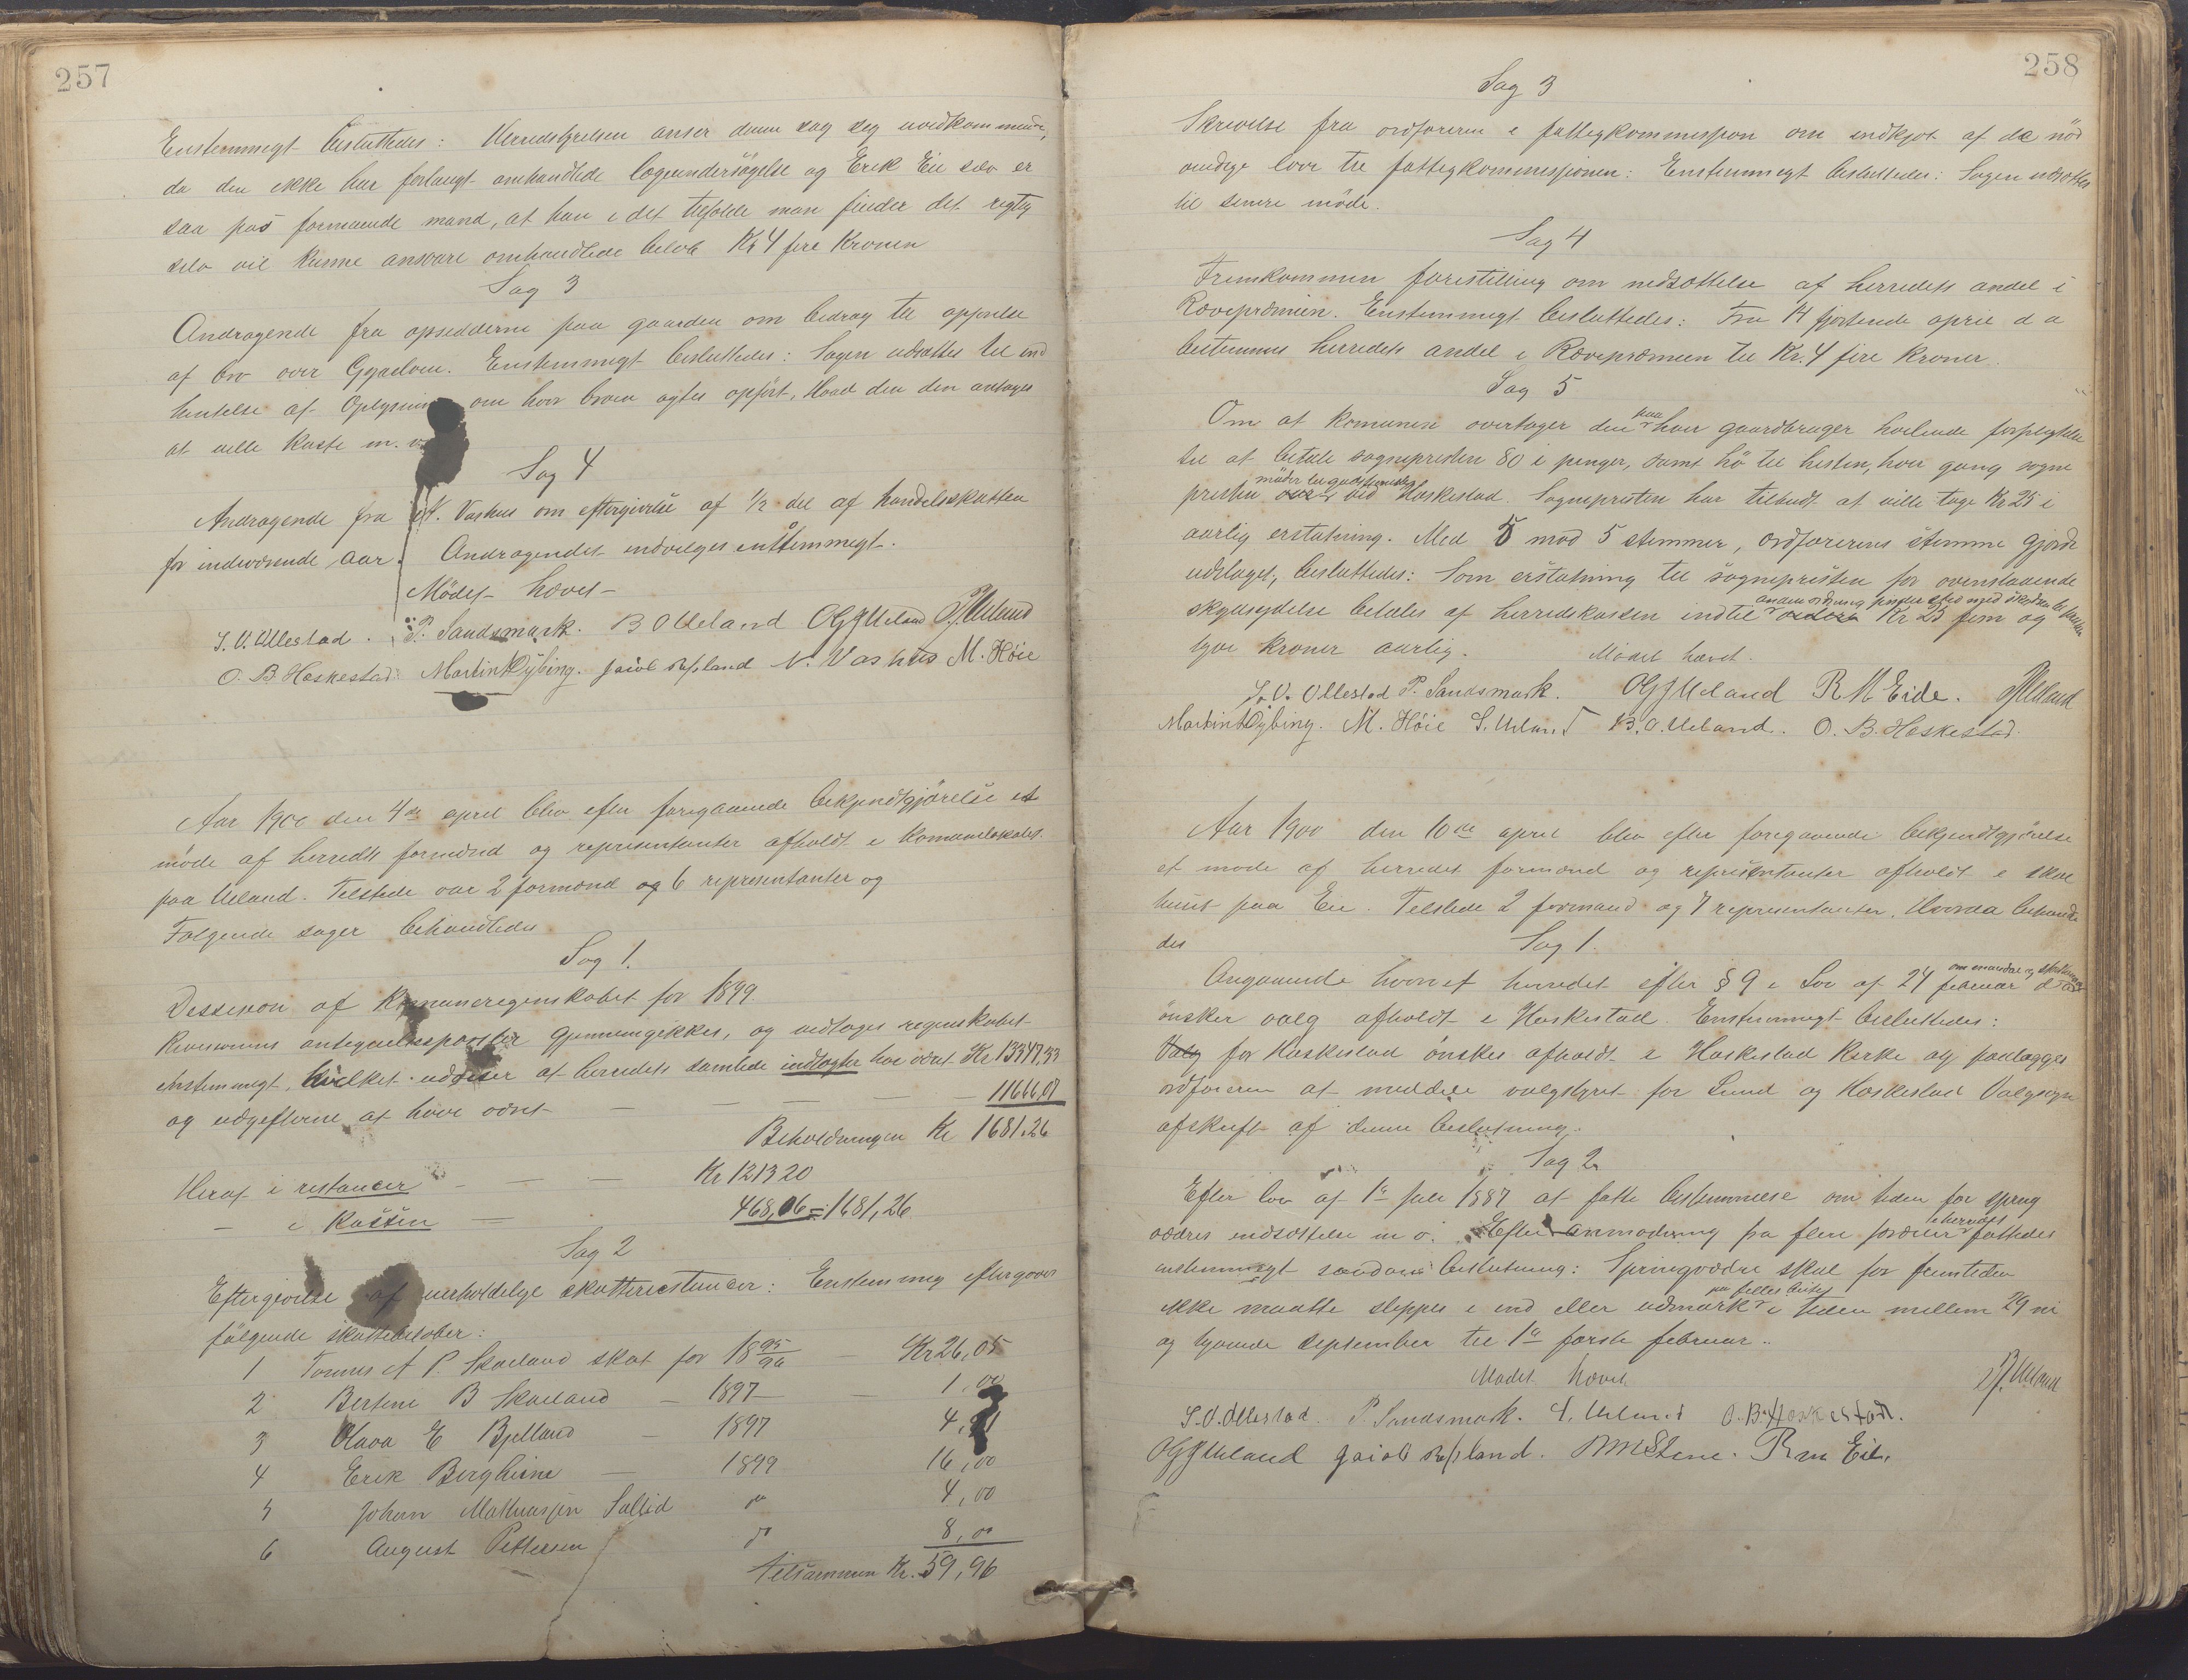 257
Enstemmigt besluttedes: Herredstyrelsen anser denne sag seg uvedkommende,
da den ikke har forlangt omhandlede lægeundersögelse og Erik Eie selv er
saa pas formuende mand, at han i det tilfælde man finder det regtig
selv vil kunne ansvare omhandlede beløb Kr 4 fire Kroner
Sag 3
Andragende fra opsedderne paa gaarden om bedrag til opførelse
af bro over Gyaelven. Enstemmigt besluttedes: Sagen udsættes til ind
hentelse af Oplysning om hvor broen agtes opført, Hvad den den antages
at ville koste m. v.
Sag 4
Andragende fra N. Vashus om eftergivelse af 1/2 del af handelsskatten
for indeværende aar. Andragendet indvilges enstemmigt.
Mödet hævet
S. V. Ollestad. P. Sandsmark. B O Ueland OGJUeland PJUeland
O. B. Heskestad. Martin Dybing. Jacob Refsland N. Vashus M. Höie
Aar 1900 den 4de april blev efter foregaaende bekjendtgjörelse et
möde af herredts formænd og representanter afholdt i Komunelokalet
paa Ueland. Tilstede var 2 formænd og 6 representanter og
Følgende sager behandledes
Sag 1.
Dessision af Kommuneregnskabet for 1899
Revisorens antegnelsesposter gjennemgikkes, og vedtoges regnskabet
enstemmigt, hvilket udviser at herredets samlede indtægter har været Kr 13347,33
og udgefterne at have været — — — — — 11666,07
Beholdningen Kr 1681,26
Heraf i restancer — — — Kr 1213 20
— i Kassen — 468,06 = 1681,26
Sag 2
Eftergivelse af uerholdelige skatterestancer: Enstemmig eftergaves
fölgende skattebeløber:
1 Tonnes A P. Skaeland skat for 18 95/96 — Kr 26,05
2 Bertine B Skaeland — 1897 — 1,00
3 Olava E Bjelland — 1897 4,91
4 Erik Berghine — 1899 16,00
5 Johan Mathiasjen Sallid do 4,00
6 August Pettersen do 8,00
tilsammen Kr. 59,96
258
Sag 3
Skrivelse fra ordføreren i fattigkommissjon om indkjøb af de nöd
vendige love til fattigkommissjonen: Enstemmigt besluttedes: Sagen udsættes
til senere möde.
Sag 4
Fremkommen forestilling om nedsættelse af herredets andel i
Rævepræmien. Enstemmigt besluttedes: Fra 14 fjortende april d a
bestemmes herredets andel i Rævepræmien til Kr. 4 fire Kroner.
Sag 5
Om at Komunen overtager den paa hver gaardbruger hvilende forpligtelse
til at betale sognepresten 80 i penger, samt hö til hesten, hver gang sogne
presten möder til gudstjeneste ved Heskestad. Sognepresten har tilbudt at ville tage Kr 25 i
aarlig erstatning. Med 5 mod 5 stemmer, ordførerens stemme gjorde
udslaget, besluttedes: Som erstatning til sognepresten for ovenstaaende
skydsydelse betales af herredskassen indtil anden ordning Kr 25 fem og
tyve kroner aarlig. Mödet hævet.
S. V. Ollestad P. Sandsmark. OGJUeland R M Eide. PJUeland
Martin Dybing. M. Höie S. Ueland B. O. Ueland. O. B. Heskestad.
Aar 1900 den 10de april blev efter foregaaende bekjendtgjörelse
et möde af herredets formænd og representanter afholdt i skole
huset paa Eie. Tilstede 2 formænd og 7 representanter. Hvorda behandle
des Sag 1.
Angaaende hvorvet herredet efter § 9 i Lov af 24 februar d a
önsker valg afholdt i Heskestad. Enstemmigt besluttedes:
Valg for Heskestad önskes afholdt i Heskestad Kirke og paalægges
ordføreren at meddele valgstyret for Lund og Heskestad Valgsogn
afskrift af denne beslutning.
Sag 2
Efter lov af 1ste juli 1887 at fatte bestemmelse om tiden for spring
væders indsættelse m v. Efter anmodning fra flere farreiere i herredet fattedes
enstemmigt saadan beslutning: Springvædre skal for fremtiden
ikke maatte sleppes i ind eller udmark paa felles beite i tiden mellem 29 ni
og tyvende september til 1ste første februar.
Mödet hævet. PJUeland
S. V. Ollestad. P. Sandsmark. S. Ueland O. B. Heskestad.
OGJUeland Jacob Refsland. R M Eide.